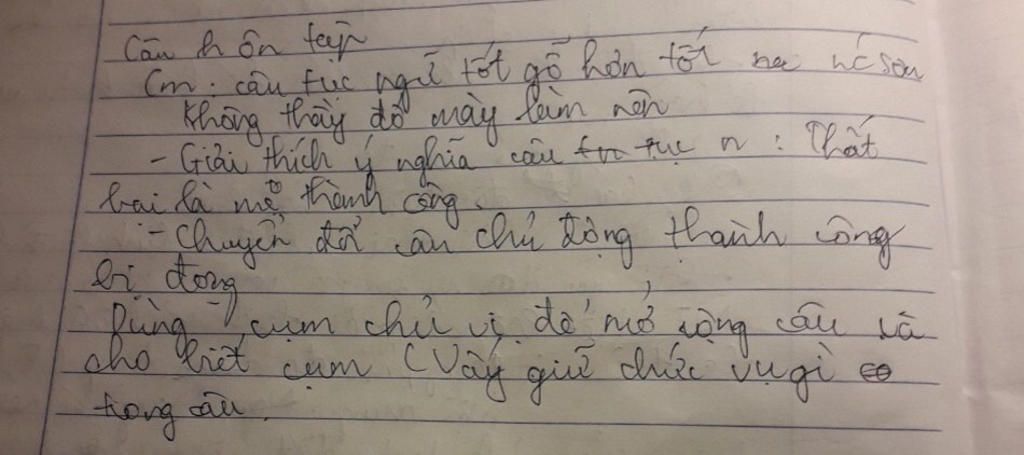 Câu h ôn tập
Cm: câu tục ngữ tốt gỗ hơn tốt nc sơn
Không thầy đố mày làm nên
- Giải thích ý nghĩa câu tục n : Thất
bai là mẹ thành công.
- Chuyển đổi câu chủ động thành công
bị đong
Dùng cụm chủ vị để mở rộng câu và
cho biết cụm CV ấy giữ chức vụ gì
trong câu.